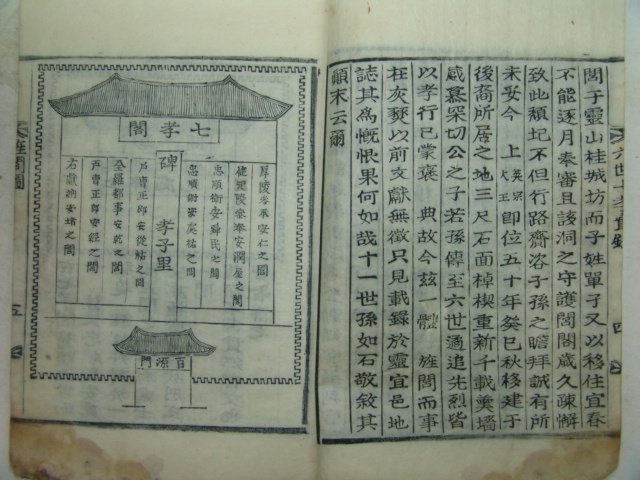 閭于靈山桂城坊而子姓單子又以移住宜春
不能逐月奉審且該洞之守護閭閣歲久疎懈
致此頹圮不但行路齎咨子孫之瞻拜誠有所
未妥今 上 英宗大王 即位五十年癸巳秋移建于
後裔所居之地三尺石面棹楔重新千載奠墻
感慕深切公之子若孫傳至六世遹追先烈皆
以孝行已蒙褒 典故今玆一體 旌閭而事
在灰燹以前文獻無徵只見載錄於靈宜邑地
誌其爲慨恨果何如哉十一世孫如石敬敘其
顚末云爾
七孝閣
碑
孝子里
厚陵參奉安仁之閭
健元陵參奉安潤屋之閭
忠順衛安舜民之閭
忠順衛安嵬祐之閭
戶曹正郎安從祐之閭
全羅都事安乾之閭
戶曹正郎安經之閭
右獻納安琇之閭
百源門
旌閭圖